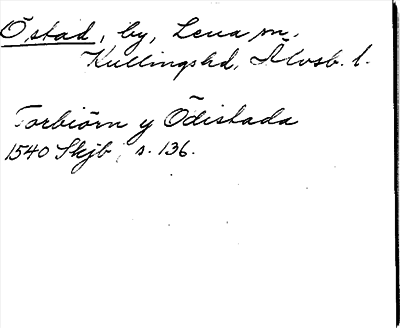 Östad, by, Lena sn.
Kullingshd, Älvsb. l.
Torbiörn y Ödistada
1540 Skjb, s. 136.